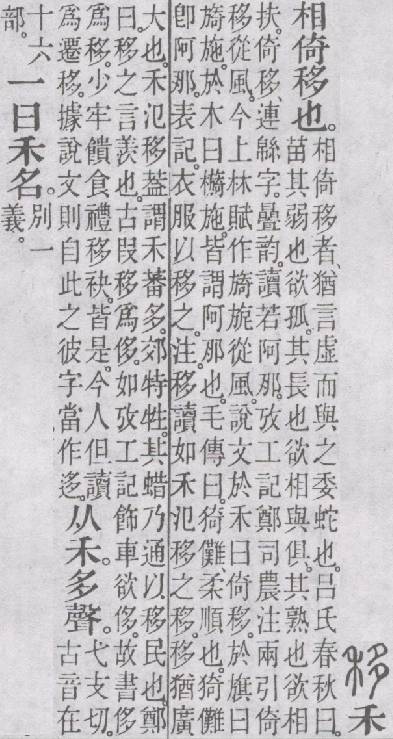 移禾
相倚移也。
相倚移者、猶言虛而與之委蛇也。呂氏春秋曰。
苗其弱也欲孤。其長也欲相與俱。其熟也欲相
扶。倚移、連緜字。曡韵。讀若阿那。攷工記鄭司農注兩引倚
移從風。今上林賦作旖旎從風。說文於禾曰倚移。於旗曰
旖施。於木曰檹施。皆謂阿那也。毛傳曰。猗儺、柔順也。猗儺
卽阿那。表記。衣服以移之。注。移讀如禾氾移之移。移猶廣
大也。禾氾移葢謂禾蕃多。郊特牲。其蜡乃通。以移民也。鄭
曰。移之言羨也。古叚移爲侈。如攷工記飾車欲侈。故書侈
爲移。少牢饋食禮移袂。皆是。今人但讀
爲遷移。據說文則自此之彼字當作迻。
从禾。多聲。
弋支切。
古音在
十六
部。
一曰禾名。
別一
義。